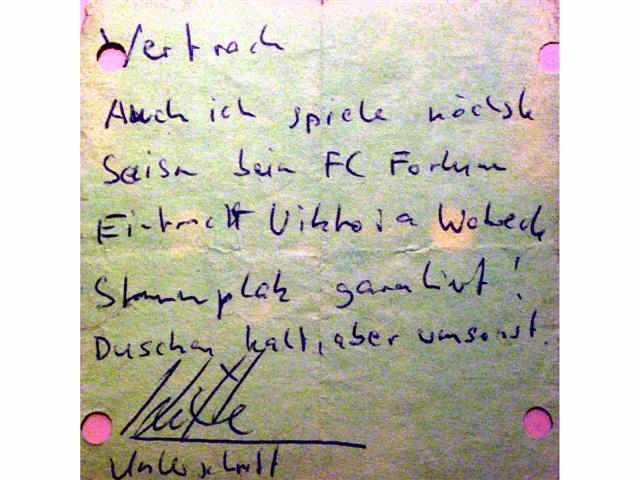 Vertrach
Auch ich spiele nächste
Saison beim FC Fortuna
Eintracht Viktoria Wobeck
Stammplatz garantiert!
Duschen kalt, aber umsonst.
Unterschrift